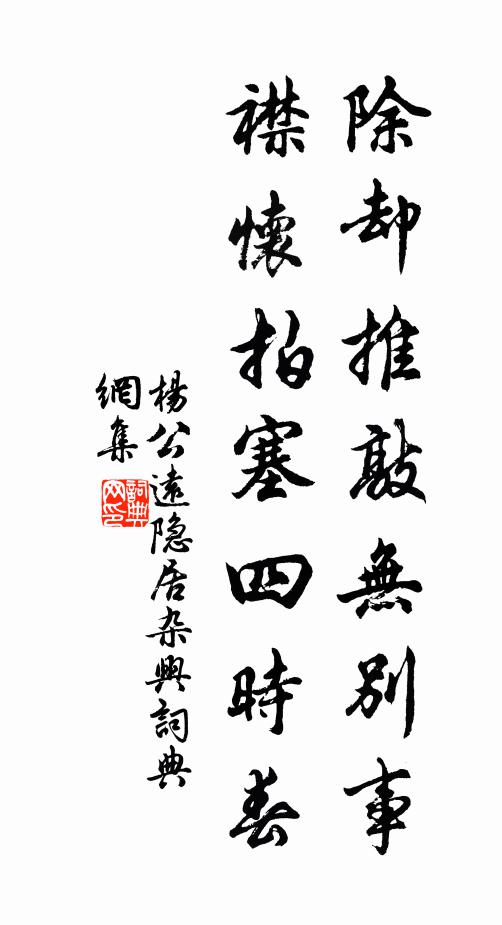 除却推敲無別事
襟懷拍塞四時春
楊公遠隐居杂興詞典
網集
詞典
网印